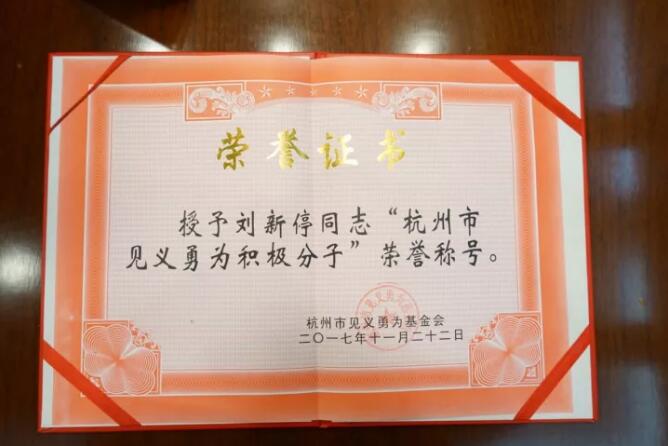 荣誉证书
授予刘新停同志“杭州市
见义勇为积极分子”荣誉称号。
杭州市见义勇为基金会
二〇一七年十一月二十二日